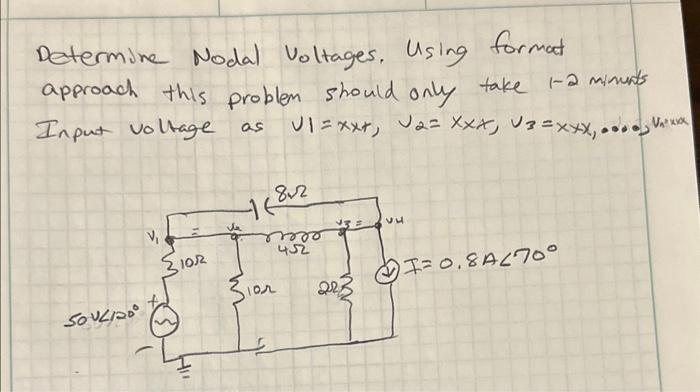 Determine Nodal Voltages. Using format
approach this problem should only take 1-2 minunts
Input voltage as V1=xxx, V2=xxx, V3=xxx, ....,
8Ω
V1 = V2 V3 = V4
4Ω
10Ω
10Ω
2Ω
I=0.8A∠70°
50V∠120° +
-